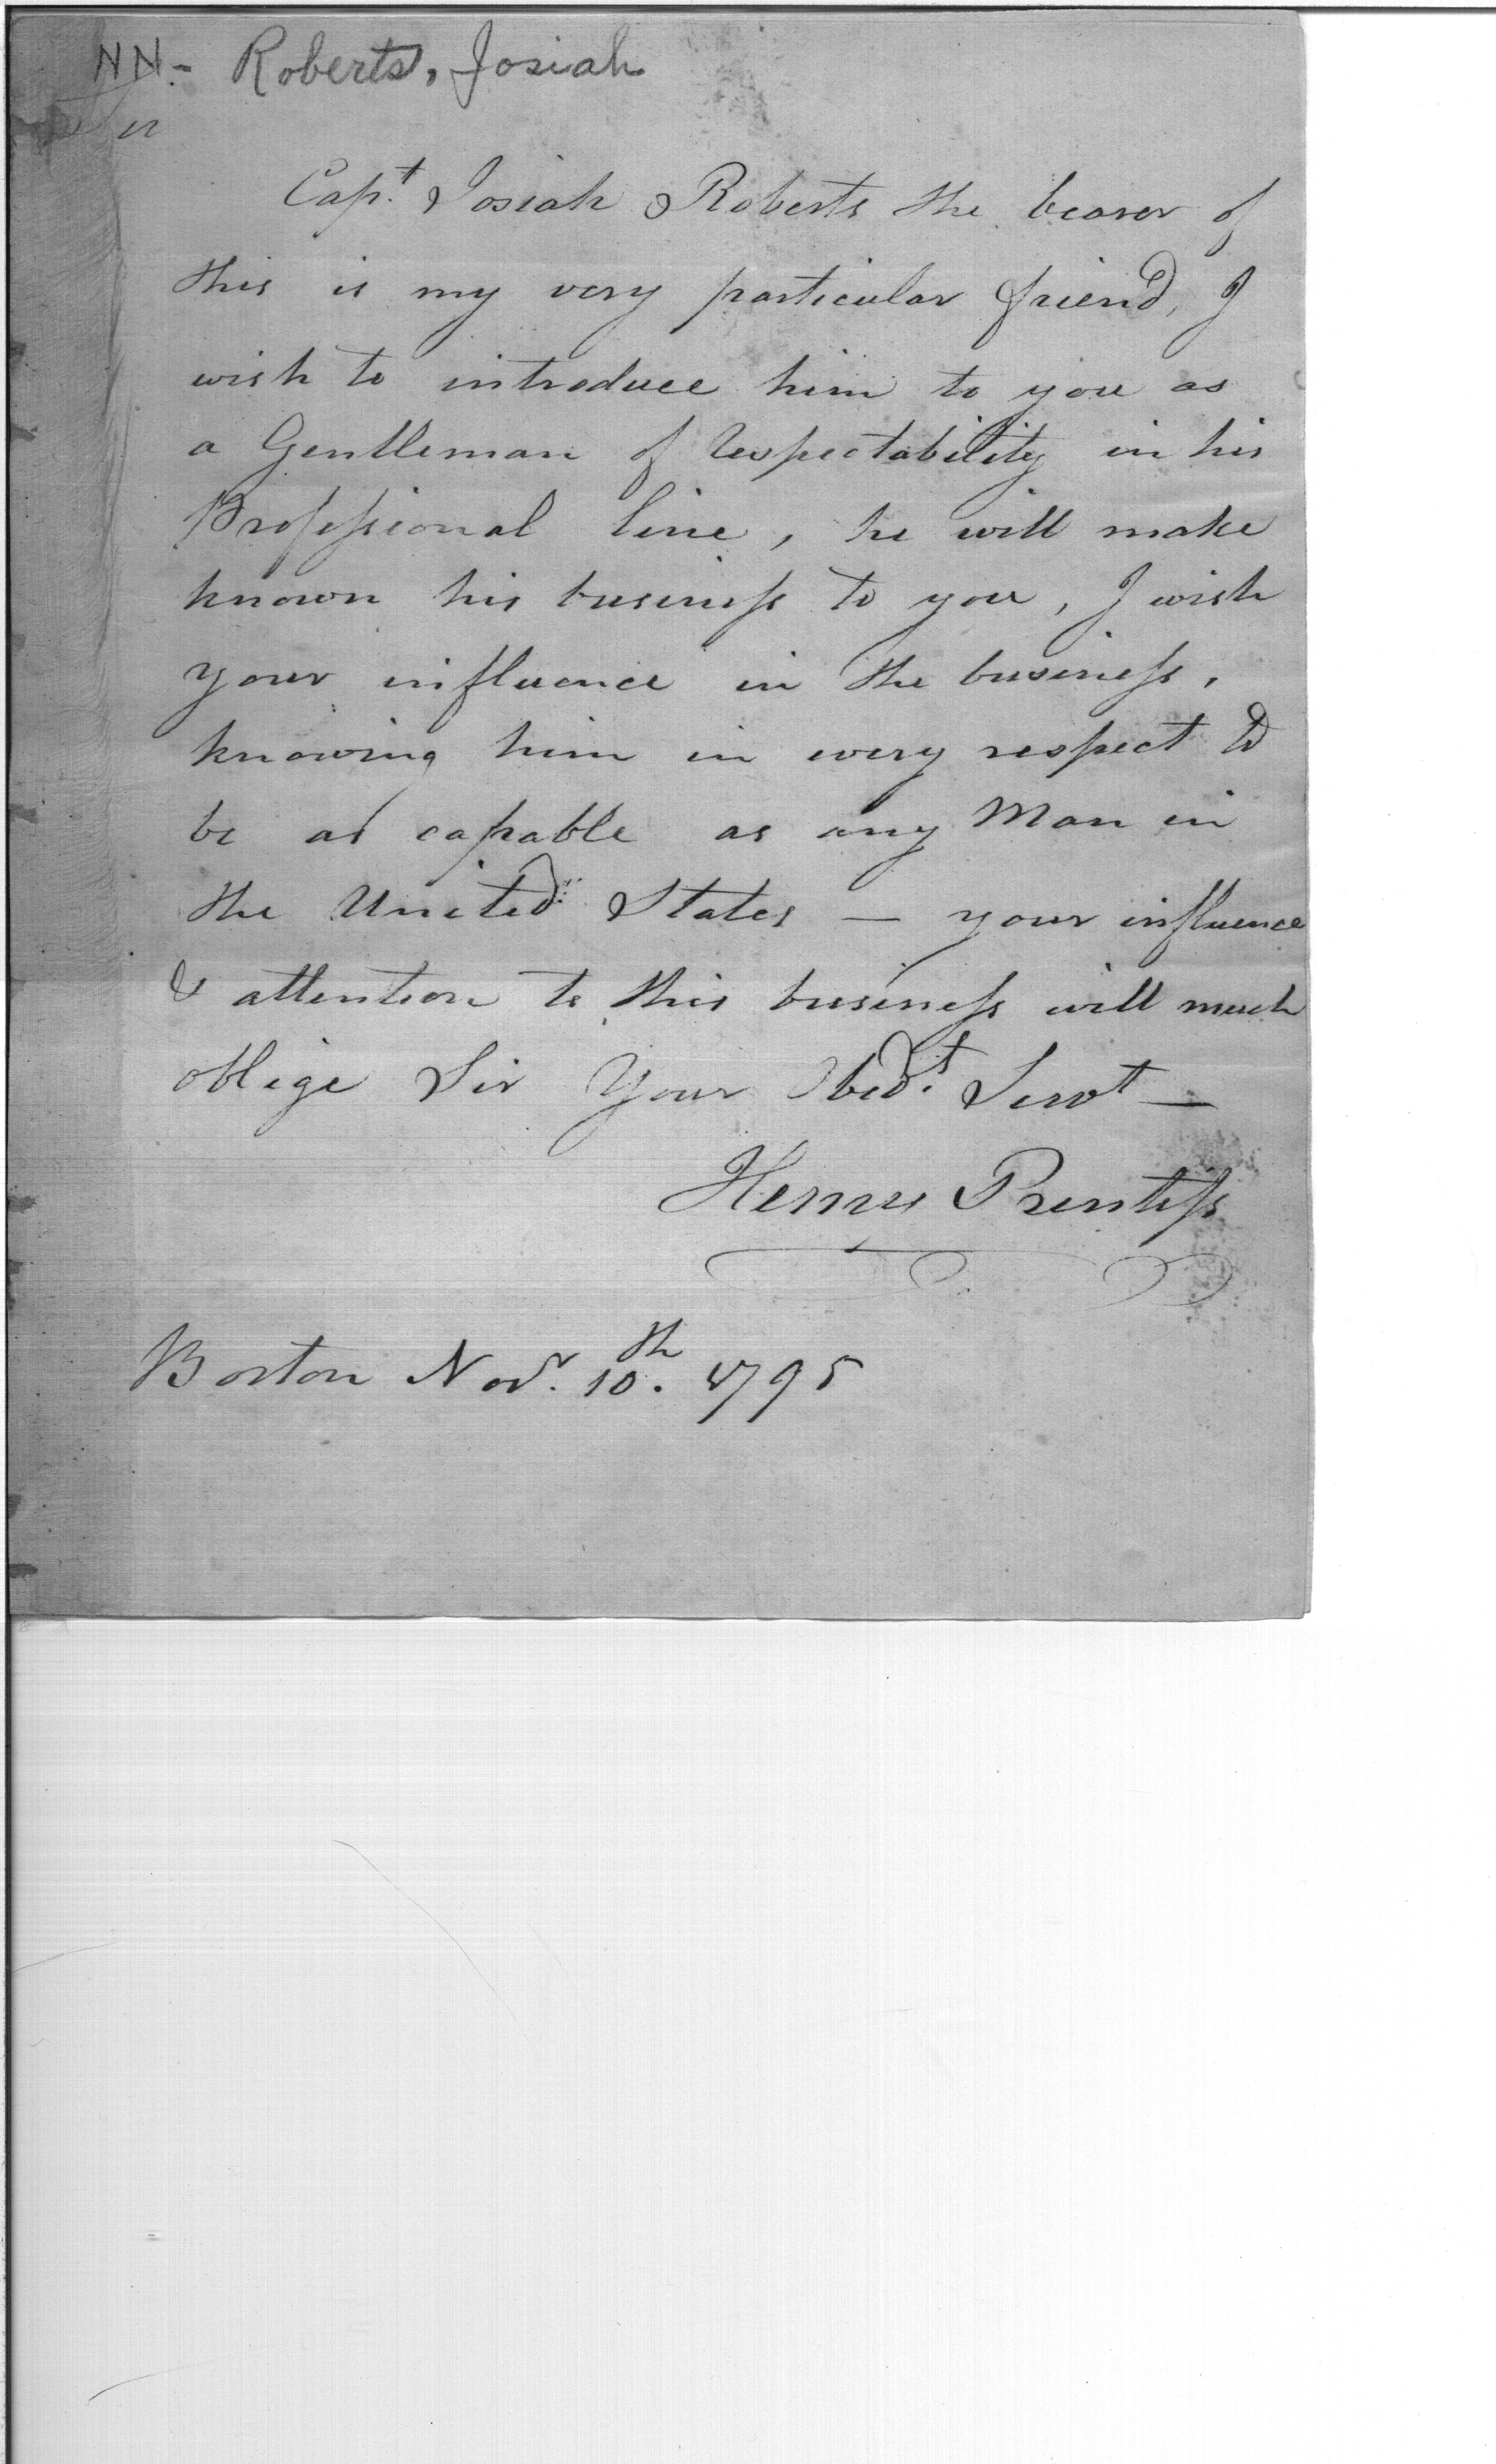 NN - Roberts, Josiah
Capt. Josiah Roberts the bearer of
this is my very particular friend, I
wish to introduce him to you as
a Gentleman of respectability in his
Professional line, he will make
known his business to you, I wish
your influence in the business,
knowing him in every respect to
be as capable as any Man in
the United States — your influence
& attention to this business will much
oblige Sir Your Obedt. Servt —
Henry Prentiss
Boston Novr. 10th. 1795